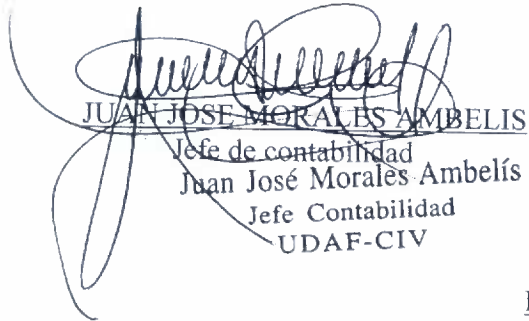 JUAN JOSE MORALES AMBELIS
Jefe de contabilidad
Juan José Morales Ambelís
Jefe Contabilidad
UDAF-CIV